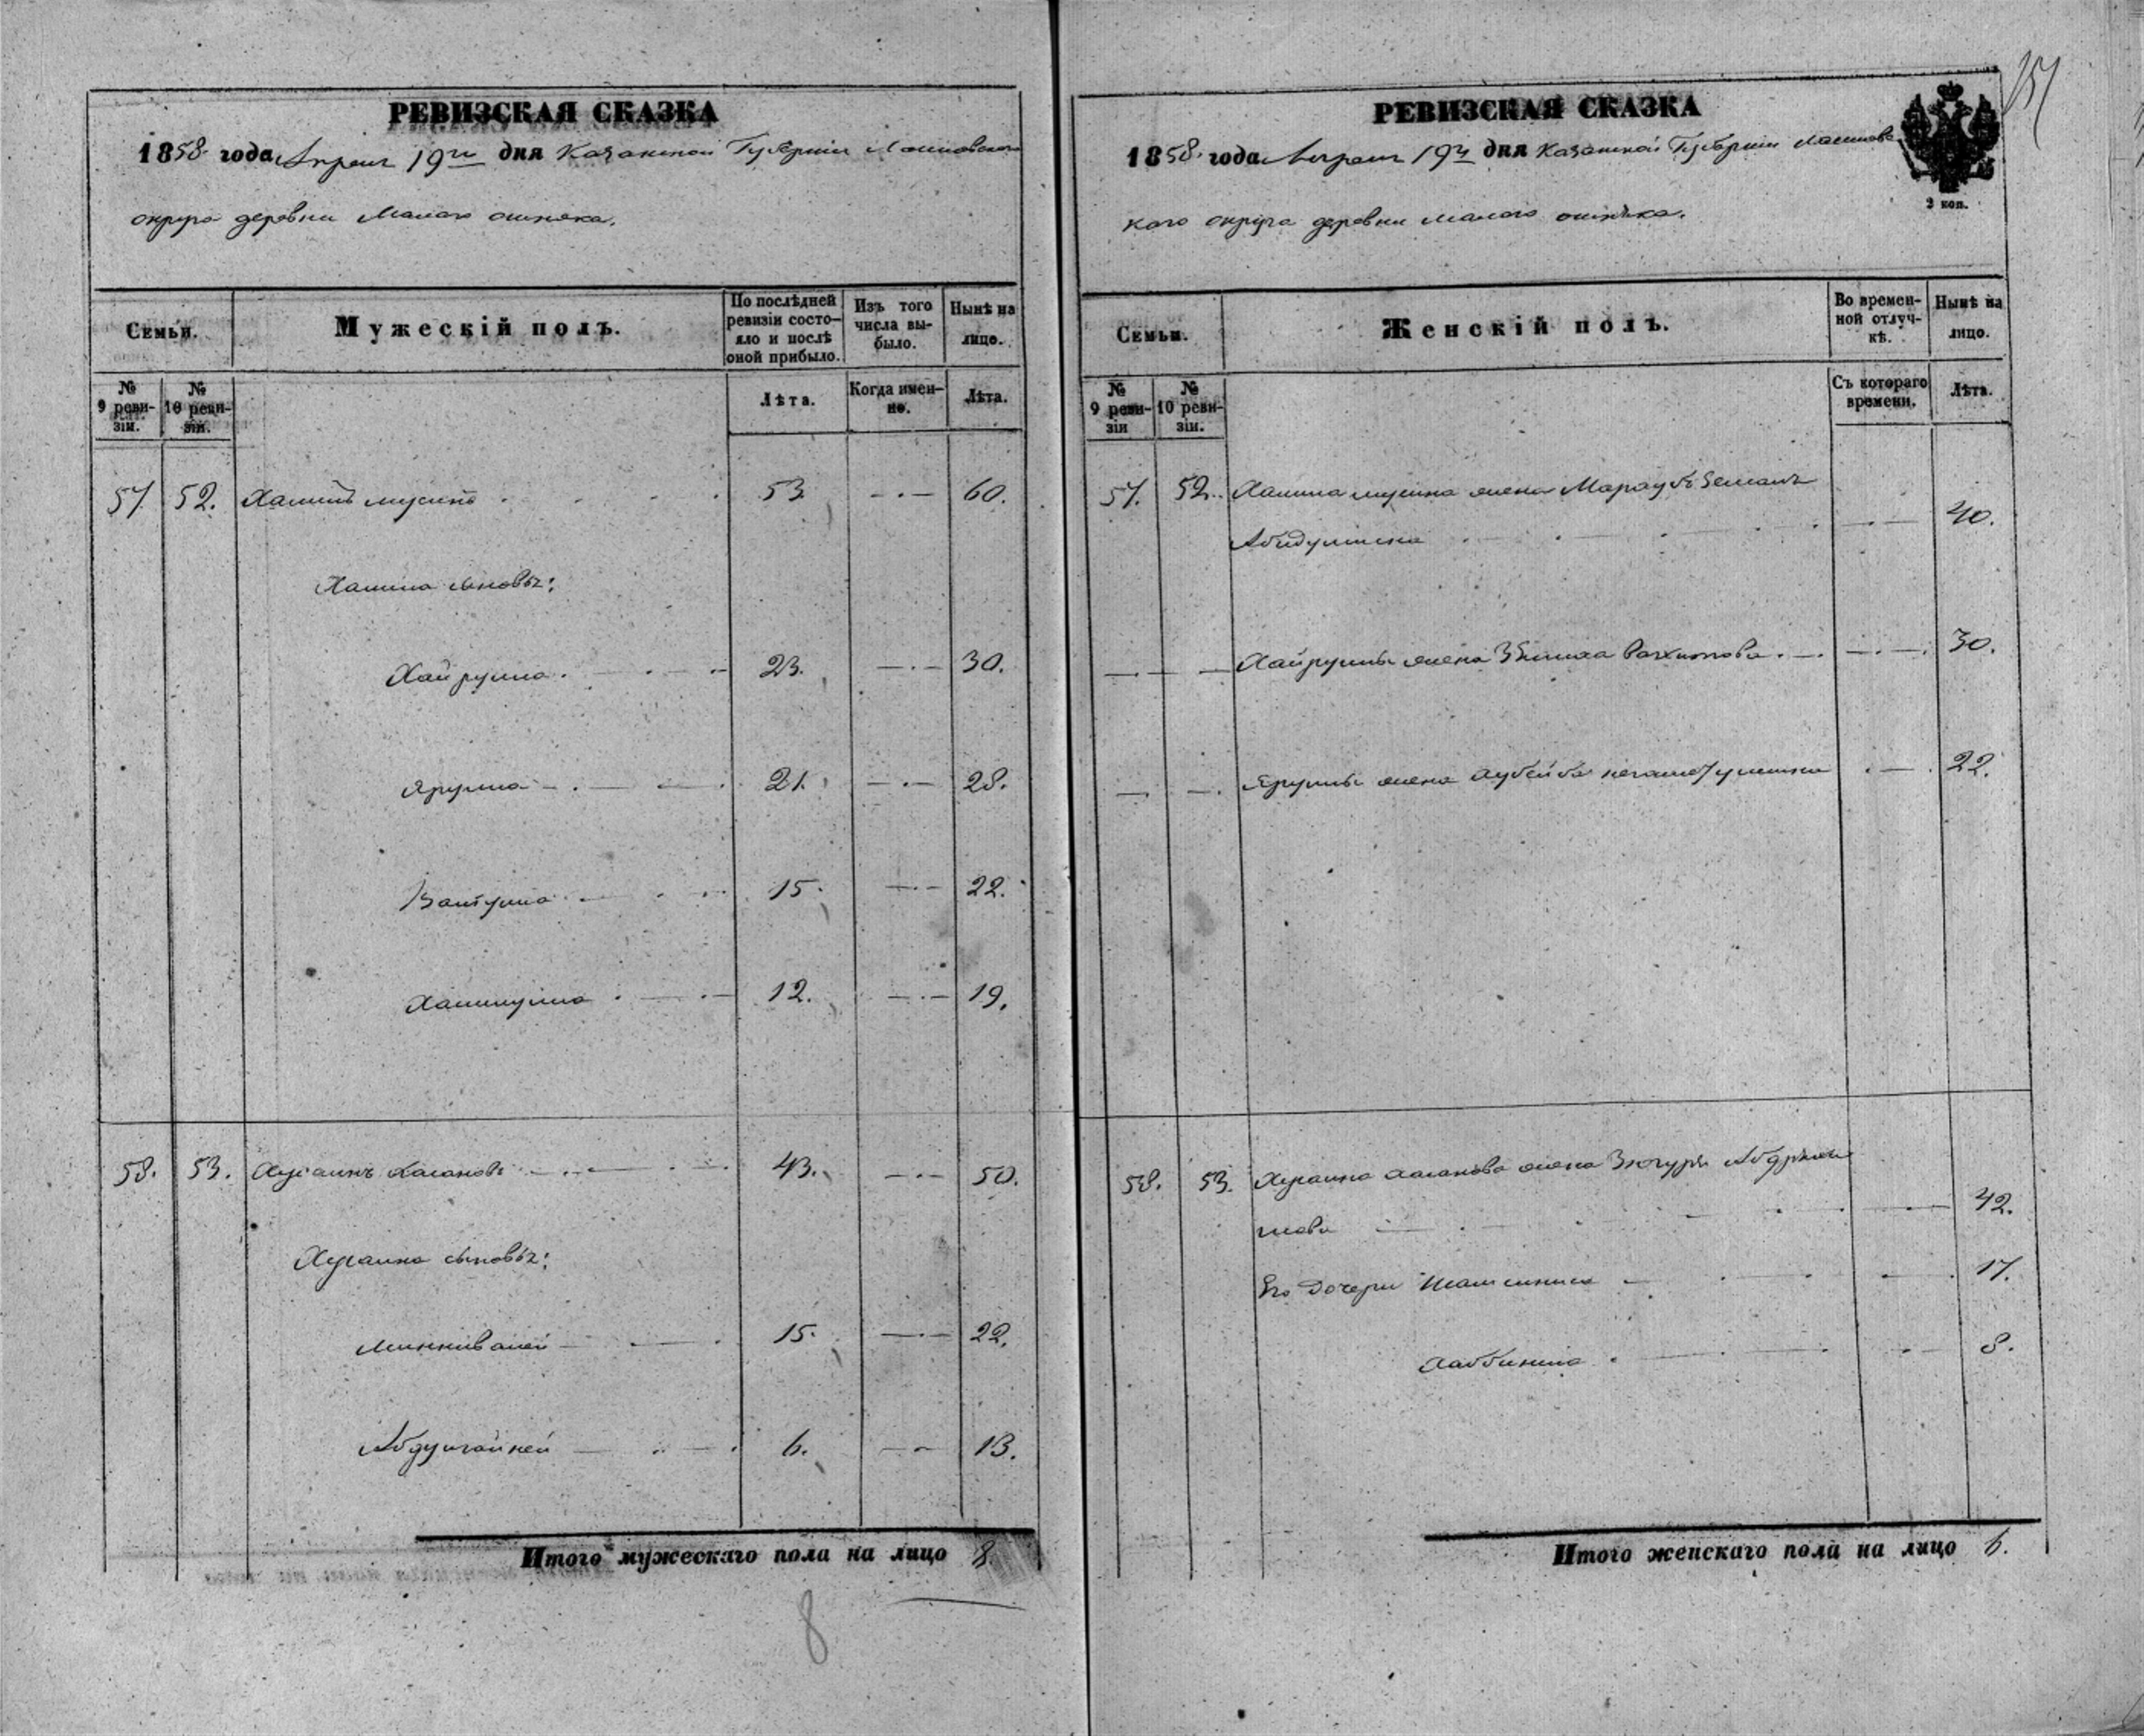 РЕВИЗСКАЯ СКАЗКА
1858 года Апреля 19го дня Казанской Губернии Лаишевскаго
округа деревни Малаго ошняка.
Семьи.
Мужескій полъ.
По послѣдней ревизіи состояло и послѣ оной прибыло.
Изъ того числа выбыло.
Нынѣ на лицо.
№ 9 ревизіи.
№ 10 ревизіи.
Лѣта.
Когда именно.
Лѣта.
57. 52. Халитъ мусинъ 53 60.
Халита сыновья:
Хайрулла 23. 30.
Ярулла 21. 28.
15. 22.
Халиулла 12. 19.
58. 53. Хусаинъ Хасановъ 43. 50.
Хусаина сыновья:
Миннивалей 15. 22.
Абдулгайней 6. 13.
Итого мужескаго пола на лицо 8.
8
151
РЕВИЗСКАЯ СКАЗКА
1858. года Апреля 19го дня Казанской Губернии Лаишевс
каго округа деревни Малаго ошняка.
3 коп.
Семьи.
Женскій полъ.
Во временной отлучкѣ.
Нынѣ на лицо.
№ 9 ревизіи
№ 10 ревизіи.
Съ котораго времени.
Лѣта.
57. 52. Халита мусина жена
Абидуллина 40.
Хайруллы жена Рахитова. 30.
Яруллы жена Хубейба 22.
58. 53. Хусаина Хасанова жена
42.
Его дочери 17.
Хаббиниса 8.
Итого женскаго пола на лицо 6.